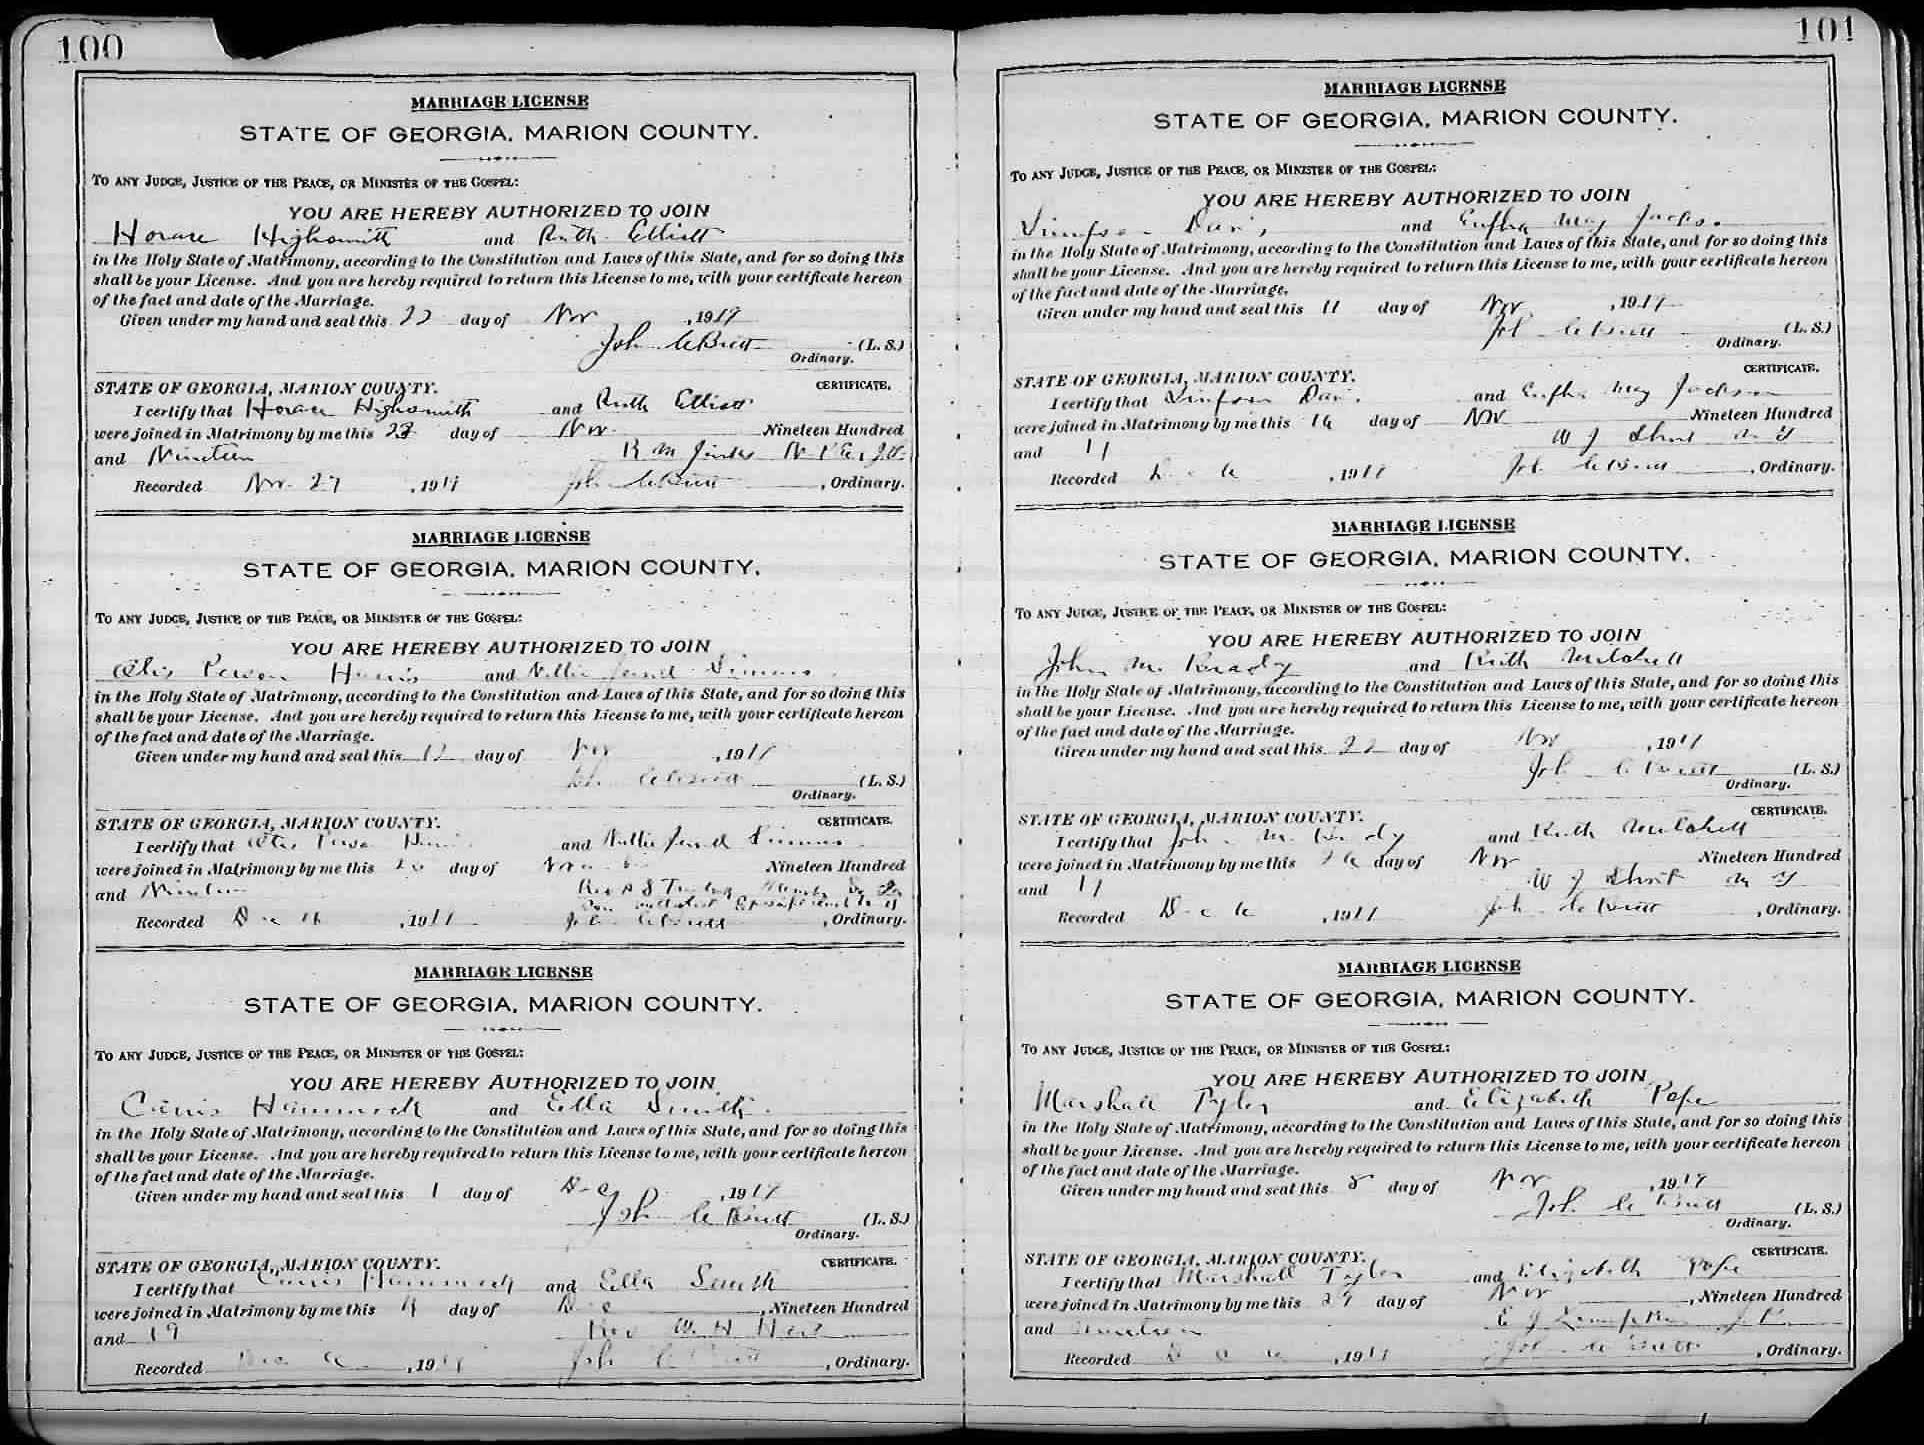 100
MARRIAGE LICENSE
STATE OF GEORGIA, MARION COUNTY.
TO ANY JUDGE, JUSTICE OF THE PEACE, OR MINISTER OF THE GOSPEL:
YOU ARE HEREBY AUTHORIZED TO JOIN
Horace Highsmith and Ruth Elliott
in the Holy State of Matrimony, according to the Constitution and Laws of this State, and for so doing this
shall be your License. And you are hereby required to return this License to me, with your certificate hereon
of the fact and date of the Marriage.
Given under my hand and seal this 22 day of Nov , 1919
John C Butt (L. S.)
Ordinary.
STATE OF GEORGIA, MARION COUNTY. CERTIFICATE.
I certify that Horace Highsmith and Ruth Elliott
were joined in Matrimony by me this 23 day of Nov Nineteen Hundred
and Nineteen R M
Recorded Nov 27 , 1919 John C Butt , Ordinary.
MARRIAGE LICENSE
STATE OF GEORGIA, MARION COUNTY.
TO ANY JUDGE, JUSTICE OF THE PEACE, OR MINISTER OF THE GOSPEL:
YOU ARE HEREBY AUTHORIZED TO JOIN
Harris and Nellie
in the Holy State of Matrimony, according to the Constitution and Laws of this State, and for so doing this
shall be your License. And you are hereby required to return this License to me, with your certificate hereon
of the fact and date of the Marriage.
Given under my hand and seal this 12 day of Nov , 1919
John C Butt (L. S.)
Ordinary.
STATE OF GEORGIA, MARION COUNTY. CERTIFICATE.
I certify that and Nellie
were joined in Matrimony by me this day of Nineteen Hundred
and Nineteen Rev
Recorded Dec , 1919 John C Butt , Ordinary.
MARRIAGE LICENSE
STATE OF GEORGIA, MARION COUNTY.
TO ANY JUDGE, JUSTICE OF THE PEACE, OR MINISTER OF THE GOSPEL:
YOU ARE HEREBY AUTHORIZED TO JOIN
Hammock and Ella Smith
in the Holy State of Matrimony, according to the Constitution and Laws of this State, and for so doing this
shall be your License. And you are hereby required to return this License to me, with your certificate hereon
of the fact and date of the Marriage.
Given under my hand and seal this 1 day of Dec , 1919
John C Butt (L. S.)
Ordinary.
STATE OF GEORGIA, MARION COUNTY. CERTIFICATE.
I certify that Hammock and Ella Smith
were joined in Matrimony by me this 4 day of Dec , Nineteen Hundred
and 19 Rev W H
Recorded Dec , 1919 John C Butt , Ordinary.
101
MARRIAGE LICENSE
STATE OF GEORGIA, MARION COUNTY.
TO ANY JUDGE, JUSTICE OF THE PEACE, OR MINISTER OF THE GOSPEL:
YOU ARE HEREBY AUTHORIZED TO JOIN
Simpson Davis and May Jackson
in the Holy State of Matrimony, according to the Constitution and Laws of this State, and for so doing this
shall be your License. And you are hereby required to return this License to me, with your certificate hereon
of the fact and date of the Marriage.
Given under my hand and seal this 11 day of Nov , 1919
John C Butt (L. S.)
Ordinary.
STATE OF GEORGIA, MARION COUNTY. CERTIFICATE.
I certify that Simpson Davis and May Jackson
were joined in Matrimony by me this 16 day of Nov Nineteen Hundred
and 19 W J Short M G
Recorded Dec , 1919 John C Butt , Ordinary.
MARRIAGE LICENSE
STATE OF GEORGIA, MARION COUNTY.
TO ANY JUDGE, JUSTICE OF THE PEACE, OR MINISTER OF THE GOSPEL:
YOU ARE HEREBY AUTHORIZED TO JOIN
John M. and Ruth Mitchell
in the Holy State of Matrimony, according to the Constitution and Laws of this State, and for so doing this
shall be your License. And you are hereby required to return this License to me, with your certificate hereon
of the fact and date of the Marriage.
Given under my hand and seal this 22 day of Nov , 1919
John C Butt (L. S.)
Ordinary.
STATE OF GEORGIA, MARION COUNTY. CERTIFICATE.
I certify that John M. and Ruth Mitchell
were joined in Matrimony by me this day of Nov Nineteen Hundred
and 19 W J Short M G
Recorded Dec , 1919 John C Butt , Ordinary.
MARRIAGE LICENSE
STATE OF GEORGIA, MARION COUNTY.
TO ANY JUDGE, JUSTICE OF THE PEACE, OR MINISTER OF THE GOSPEL:
YOU ARE HEREBY AUTHORIZED TO JOIN
Marshall Tyler and Elizabeth Pope
in the Holy State of Matrimony, according to the Constitution and Laws of this State, and for so doing this
shall be your License. And you are hereby required to return this License to me, with your certificate hereon
of the fact and date of the Marriage.
Given under my hand and seal this 8 day of Nov , 1919
John C Butt (L. S.)
Ordinary.
STATE OF GEORGIA, MARION COUNTY. CERTIFICATE.
I certify that Marshall Tyler and Elizabeth Pope
were joined in Matrimony by me this 29 day of Nov , Nineteen Hundred
and Nineteen E J
Recorded Dec , 1919 John C Butt , Ordinary.